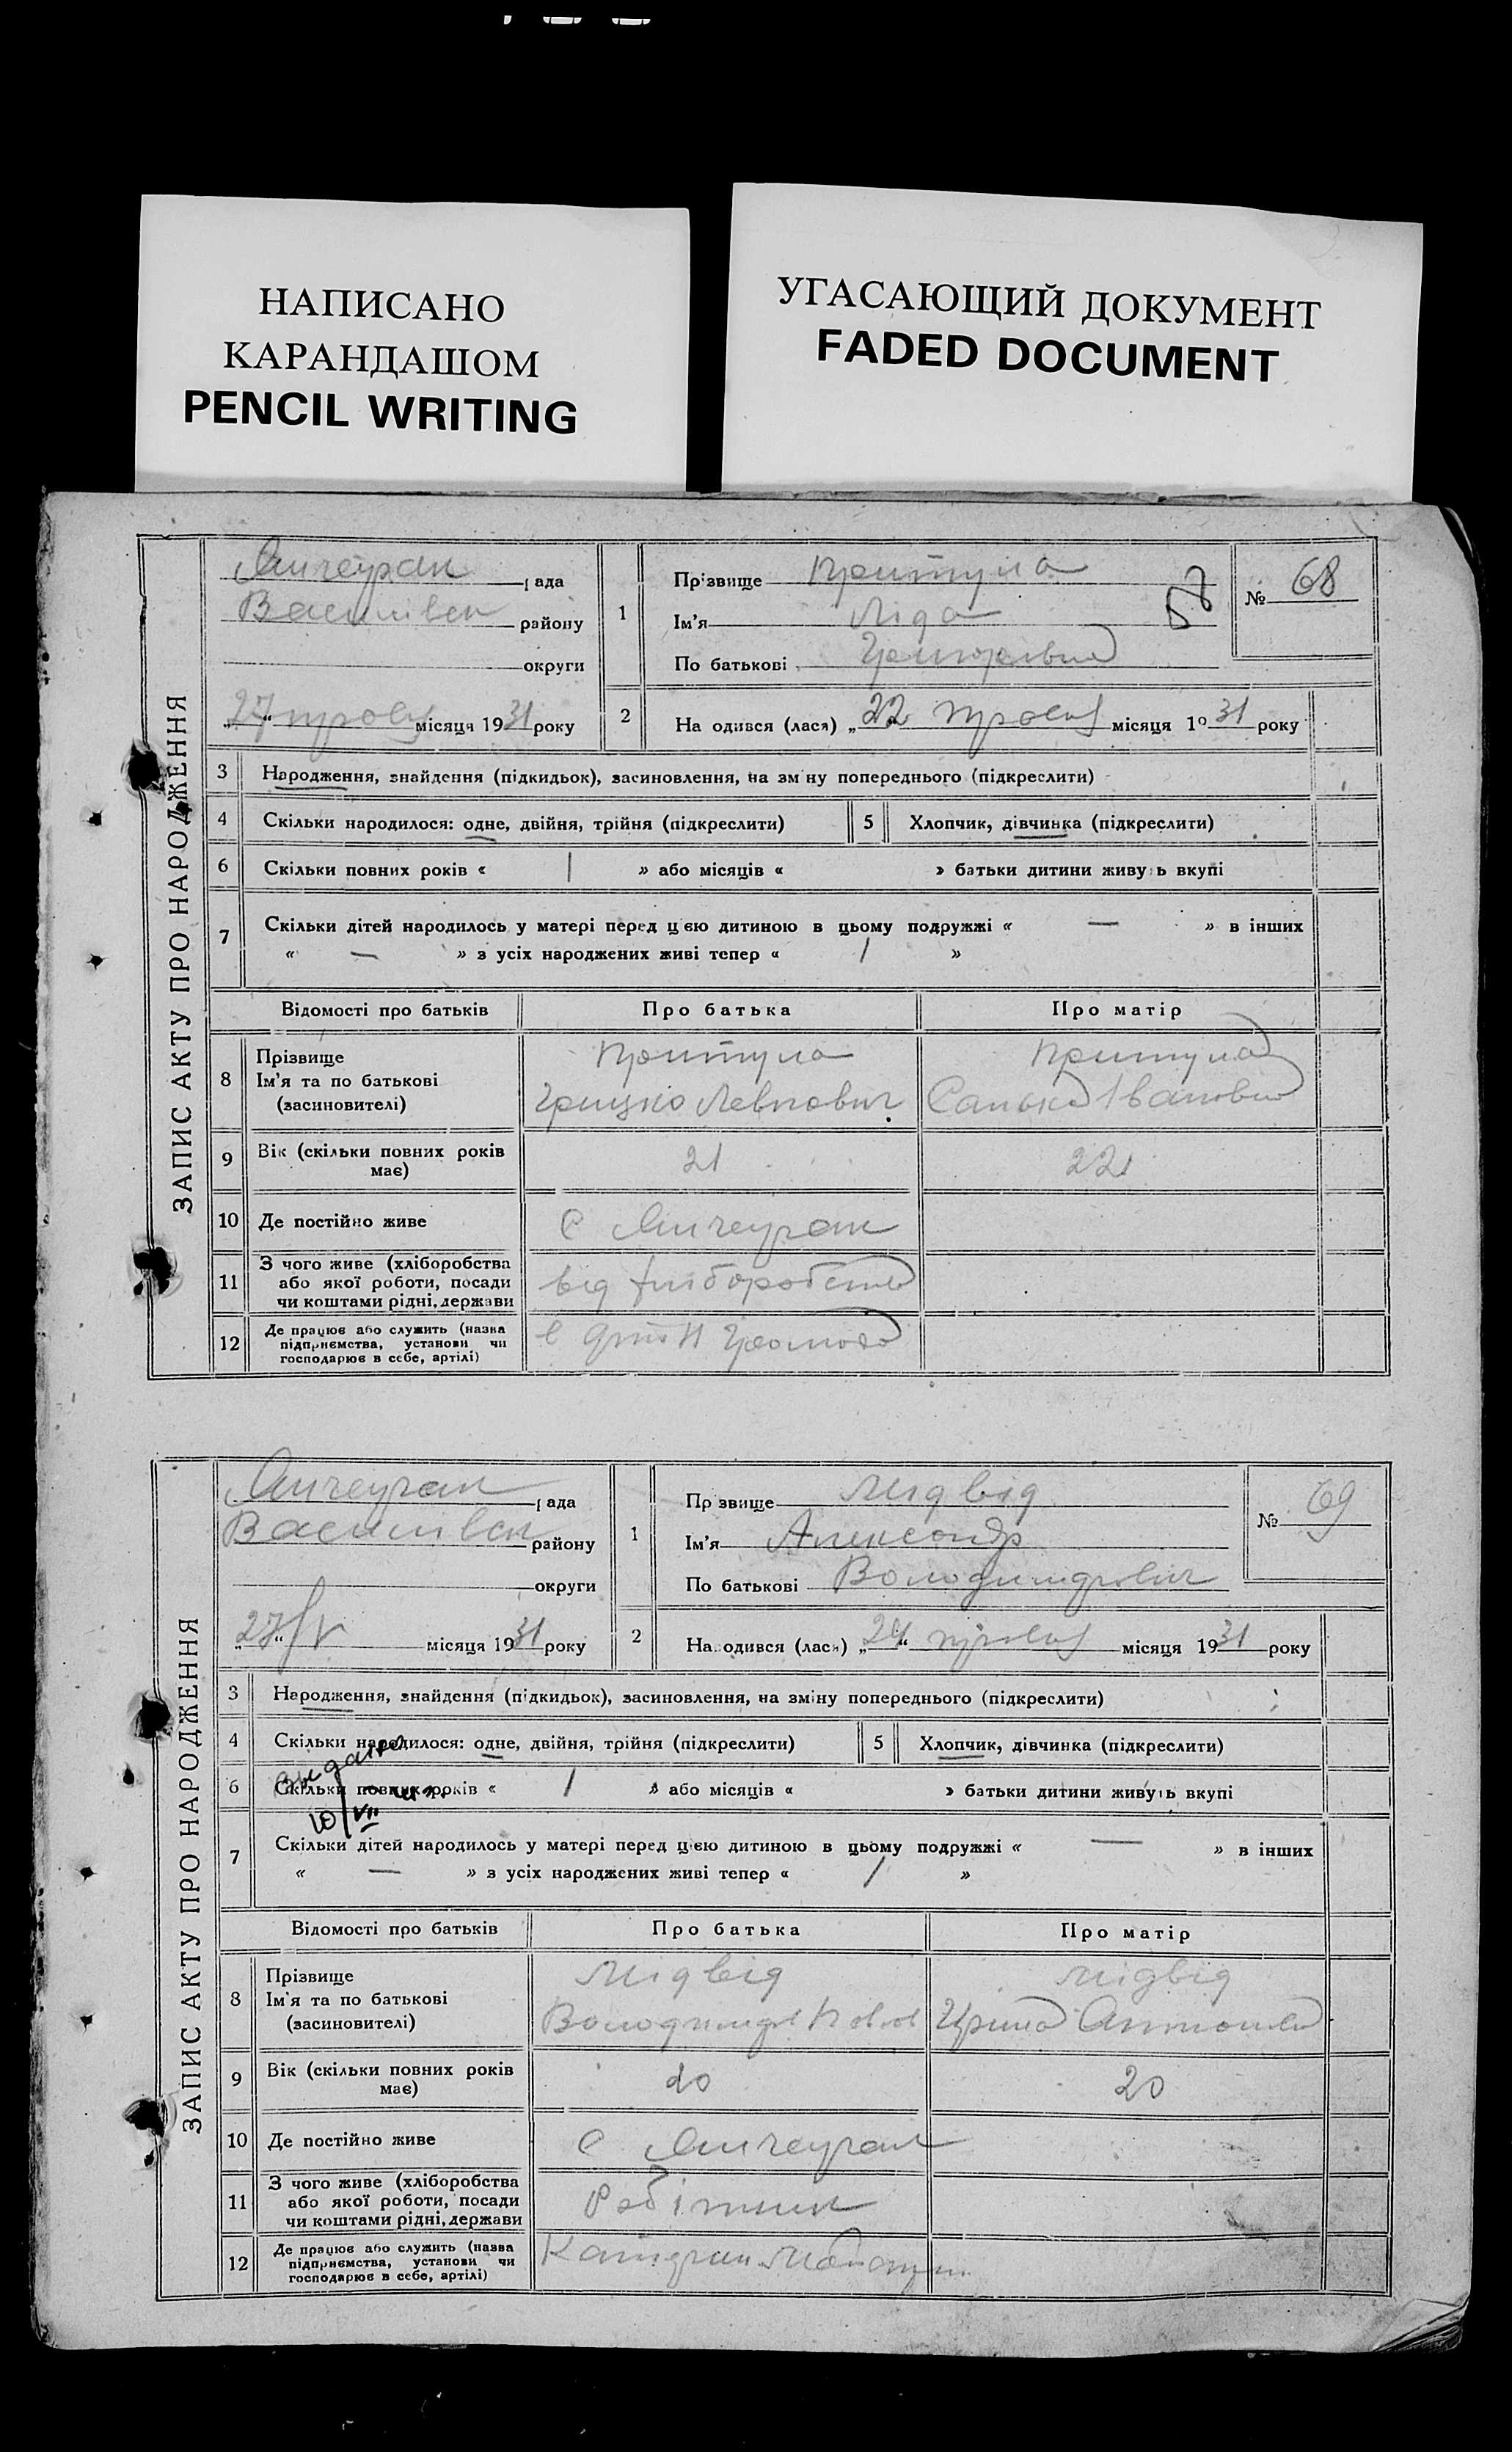 НАПИСАНО
КАРАНДАШОМ
PENCIL WRITING
УГАСАЮЩИЙ ДОКУМЕНТ
FADED DOCUMENT
ЗАПИС АКТУ ПРО НАРОДЖЕННЯ
рада
Василівск району
округи
„27“ травня місяця 1931 року
1
Прізвище Притула
Ім'я Ліда
По батькові
№ 68
2
Народився (лася) „22“ травня місяця 1931 року
3 Народження, знайдення (підкидьок), засиновлення, на зміну попереднього (підкреслити)
4 Скільки народилося: одне, двійня, трійня (підкреслити)
5 Хлопчик, дівчинка (підкреслити)
6 Скільки повних років « 1 » або місяців « » батьки дитини живуть вкупі
7 Скільки дітей народилось у матері перед цією дитиною в цьому подружжі « — » в інших
« — » з усіх народжених живі тепер « 1 »
Відомості про батьків
Про батька
Про матір
8 Прізвище
Ім'я та по батькові
(засиновителі)
Притула
Грицько Левкович
Притула
Санька Івановна
9 Вік (скільки повних років
має)
21
22
10 Де постійно живе
с
11 З чого живе (хліборобства
або якої роботи, посади
чи коштами рідні, держави
від хліборобства
12 Де працює або служить (назва
підприємства, установи чи
господарює в себе, артілі)
в
ЗАПИС АКТУ ПРО НАРОДЖЕННЯ
рада
Василівск району
округи
„27“/V місяця 1931 року
1
Прізвище Мідвід
Ім'я Александр
По батькові Володимирович
№ 69
2
Народився (лася) „24“ травня місяця 1931 року
3 Народження, знайдення (підкидьок), засиновлення, на зміну попереднього (підкреслити)
4 Скільки народилося: одне, двійня, трійня (підкреслити)
5 Хлопчик, дівчинка (підкреслити)
6 Скільки повних років « 1 » або місяців « » батьки дитини живуть вкупі
10/VII
7 Скільки дітей народилось у матері перед цією дитиною в цьому подружжі « — » в інших
« — » з усіх народжених живі тепер « 1 »
Відомості про батьків
Про батька
Про матір
8 Прізвище
Ім'я та по батькові
(засиновителі)
Мідвід
Мідвід
9 Вік (скільки повних років
має)
20
20
10 Де постійно живе
с
11 З чого живе (хліборобства
або якої роботи, посади
чи коштами рідні, держави
Робітник
12 Де працює або служить (назва
підприємства, установи чи
господарює в себе, артілі)